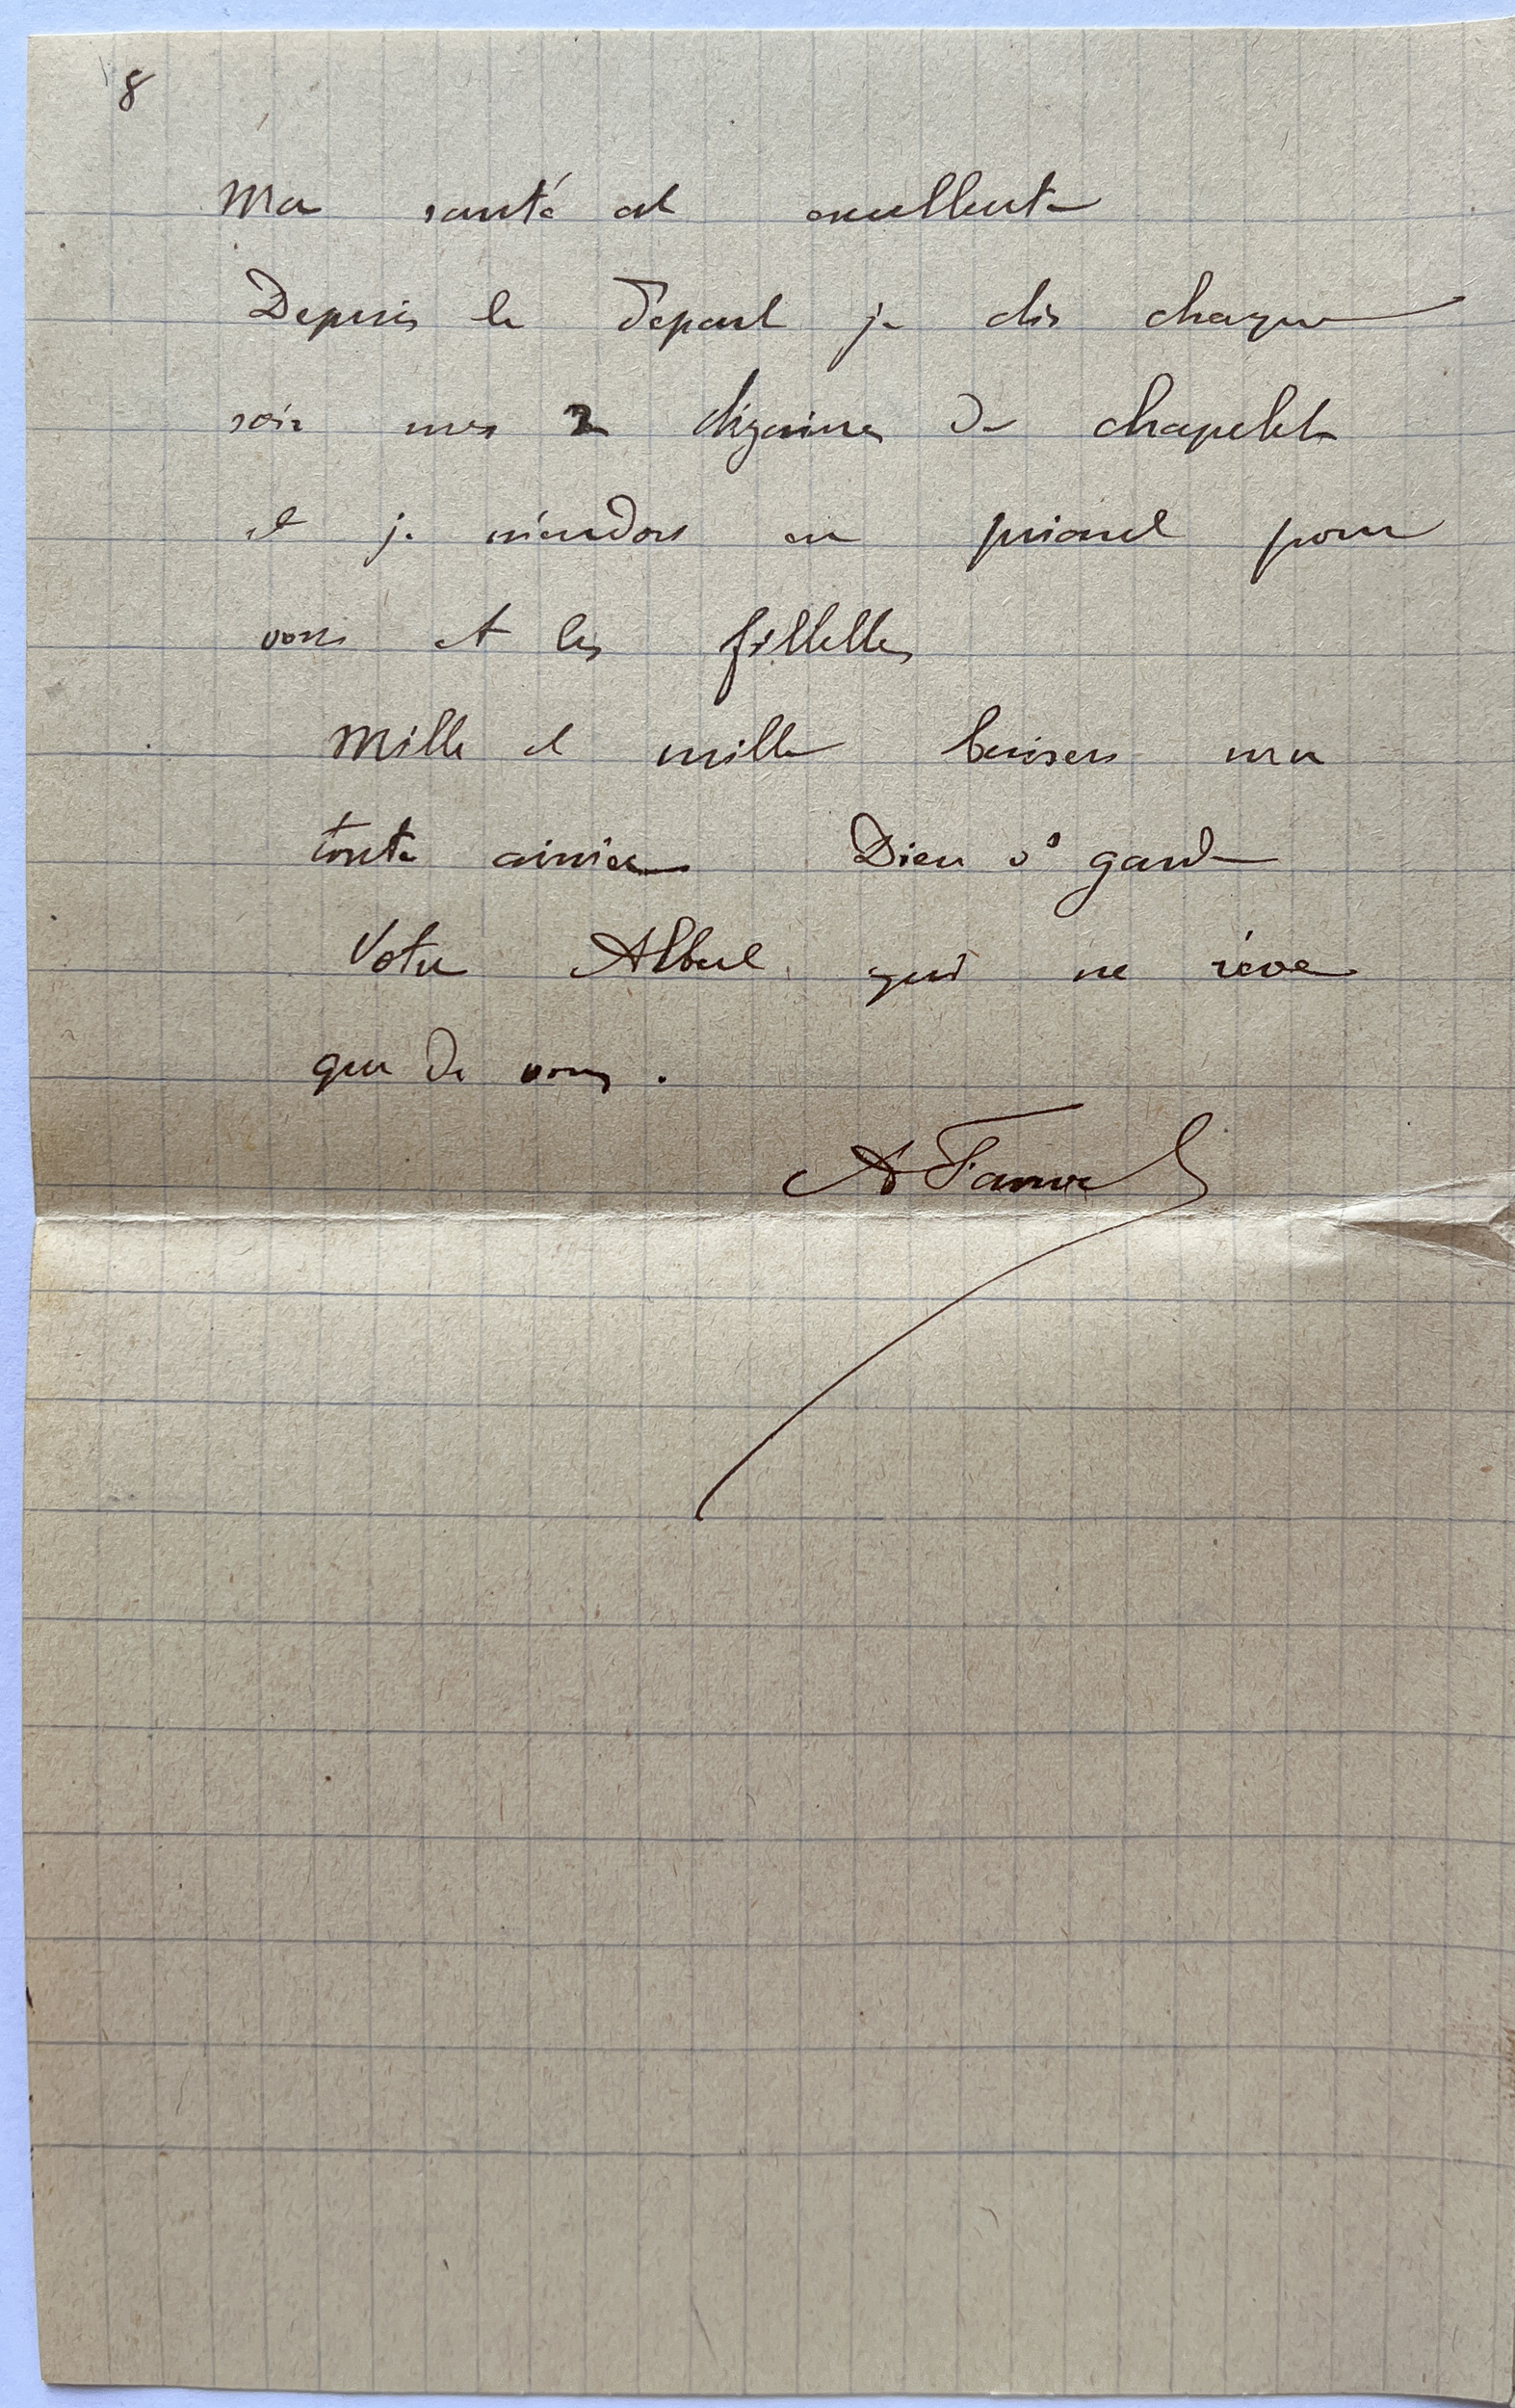 8
Ma santé est excellente
Depuis le départ je dis chaque
soir mes 2 dizaines de chapelet
et je m'endors en priant pour
vous et les fillettes
Mille et mille baisers ma
toute aimée Dieu vs garde
Votre Albert qui ne rêve
que de vous.
A